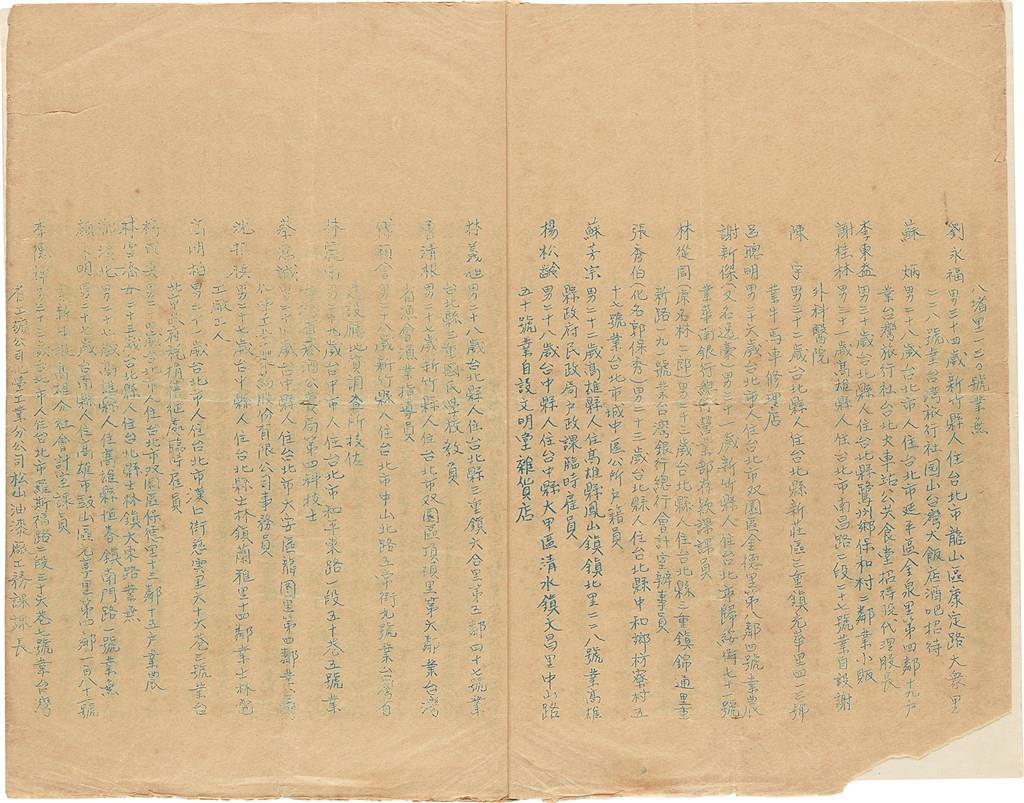 八堵里一二〇號業無
劉永福男三十四歲新竹縣人住台北市龍山區康定路大眾里
二二八號業台灣旅行社圓山台灣大飯店酒吧招待
蘇　炳男二十八歲台北市人住台北市延平區全泉里第四鄰十九戶
業台灣旅行社台北火車站公共食堂招待股代理股長
李東益男三十三歲台北縣人住台北縣鷺洲鄉保和村二鄰業小販
謝桂林男二十一歲高雄縣人住台北市南昌路二段二十七號業自設謝
外科醫院
陳　字男二十二歲台北縣人住台北縣新莊區二重鎮光華里四一三號
業牛馬車修理店
呂聰明男二十六歲台北市人住台北市双園區全德里第八鄰四號業農
謝新傑男三十一歲新竹縣人住台北市歸綏街七十號
業華南銀行總行營業部存款課課員
林從周男三十三歲台北縣人住台北縣三重鎮錦通里重
新路一九一號業台灣銀行總行會計室辦事員
張秀伯(化名郭保秀)男二十三歲台北縣人住台北縣中和鄉枋寮村五
十七號業台北市城中區公所戶籍員
蘇芳宗男二十二歲高雄縣人住高雄縣鳳山鎮鎮北里二二八號業高雄
縣政府民政局戶政課臨時雇員
楊松齡男二十八歲台中縣人住台中縣大甲區清水鎮文昌里中山路
五十號業自設文明堂雜貨店
林義旭男二十八歲台北縣人住台北縣三重鎮六合里第五鄰四十七號業
台北縣三重國民學校教員
清根男二十七歲新竹縣人住台北市双園區頂碩里第六鄰業台灣
省漁會漁業指導員
男二十八歲新竹縣人住台北市中山北路五條街九號業台灣省
建設廳地質調查所技佐
歲台中市人住台北市和平東路一段五十巷五號業
菸酒公賣局第四科技士
蔡忠誠男歲台中縣人住台北市大安區龍圖里第四鄰業台灣
股份有限公司事務員
男二十七歲台中縣人住台北縣士林鎮蘭雅里十四鄰業士林電
工廠工人
明柏男二十一歲台北市人住台北市漢口街慈雲里六十六巷三號業台
北市政府稅捐稽征處臨時雇員
歲台北市人住台北市双園區保德里十三鄰十五戶業農
林雪女二十三歲台北縣人住台北縣士林鎮大東路業無
男二十七歲高雄縣人住高雄縣恒春鎮南門路一號業無
男二十七歲台南縣人住高雄市鼓山區光事里第四鄰一百八十一號
會計室課員
男三十三歲台北市人住台北市羅斯福路二段三十六巷七號業台灣
省工礦公司化學工業分公司松山油漆廠工務課課長